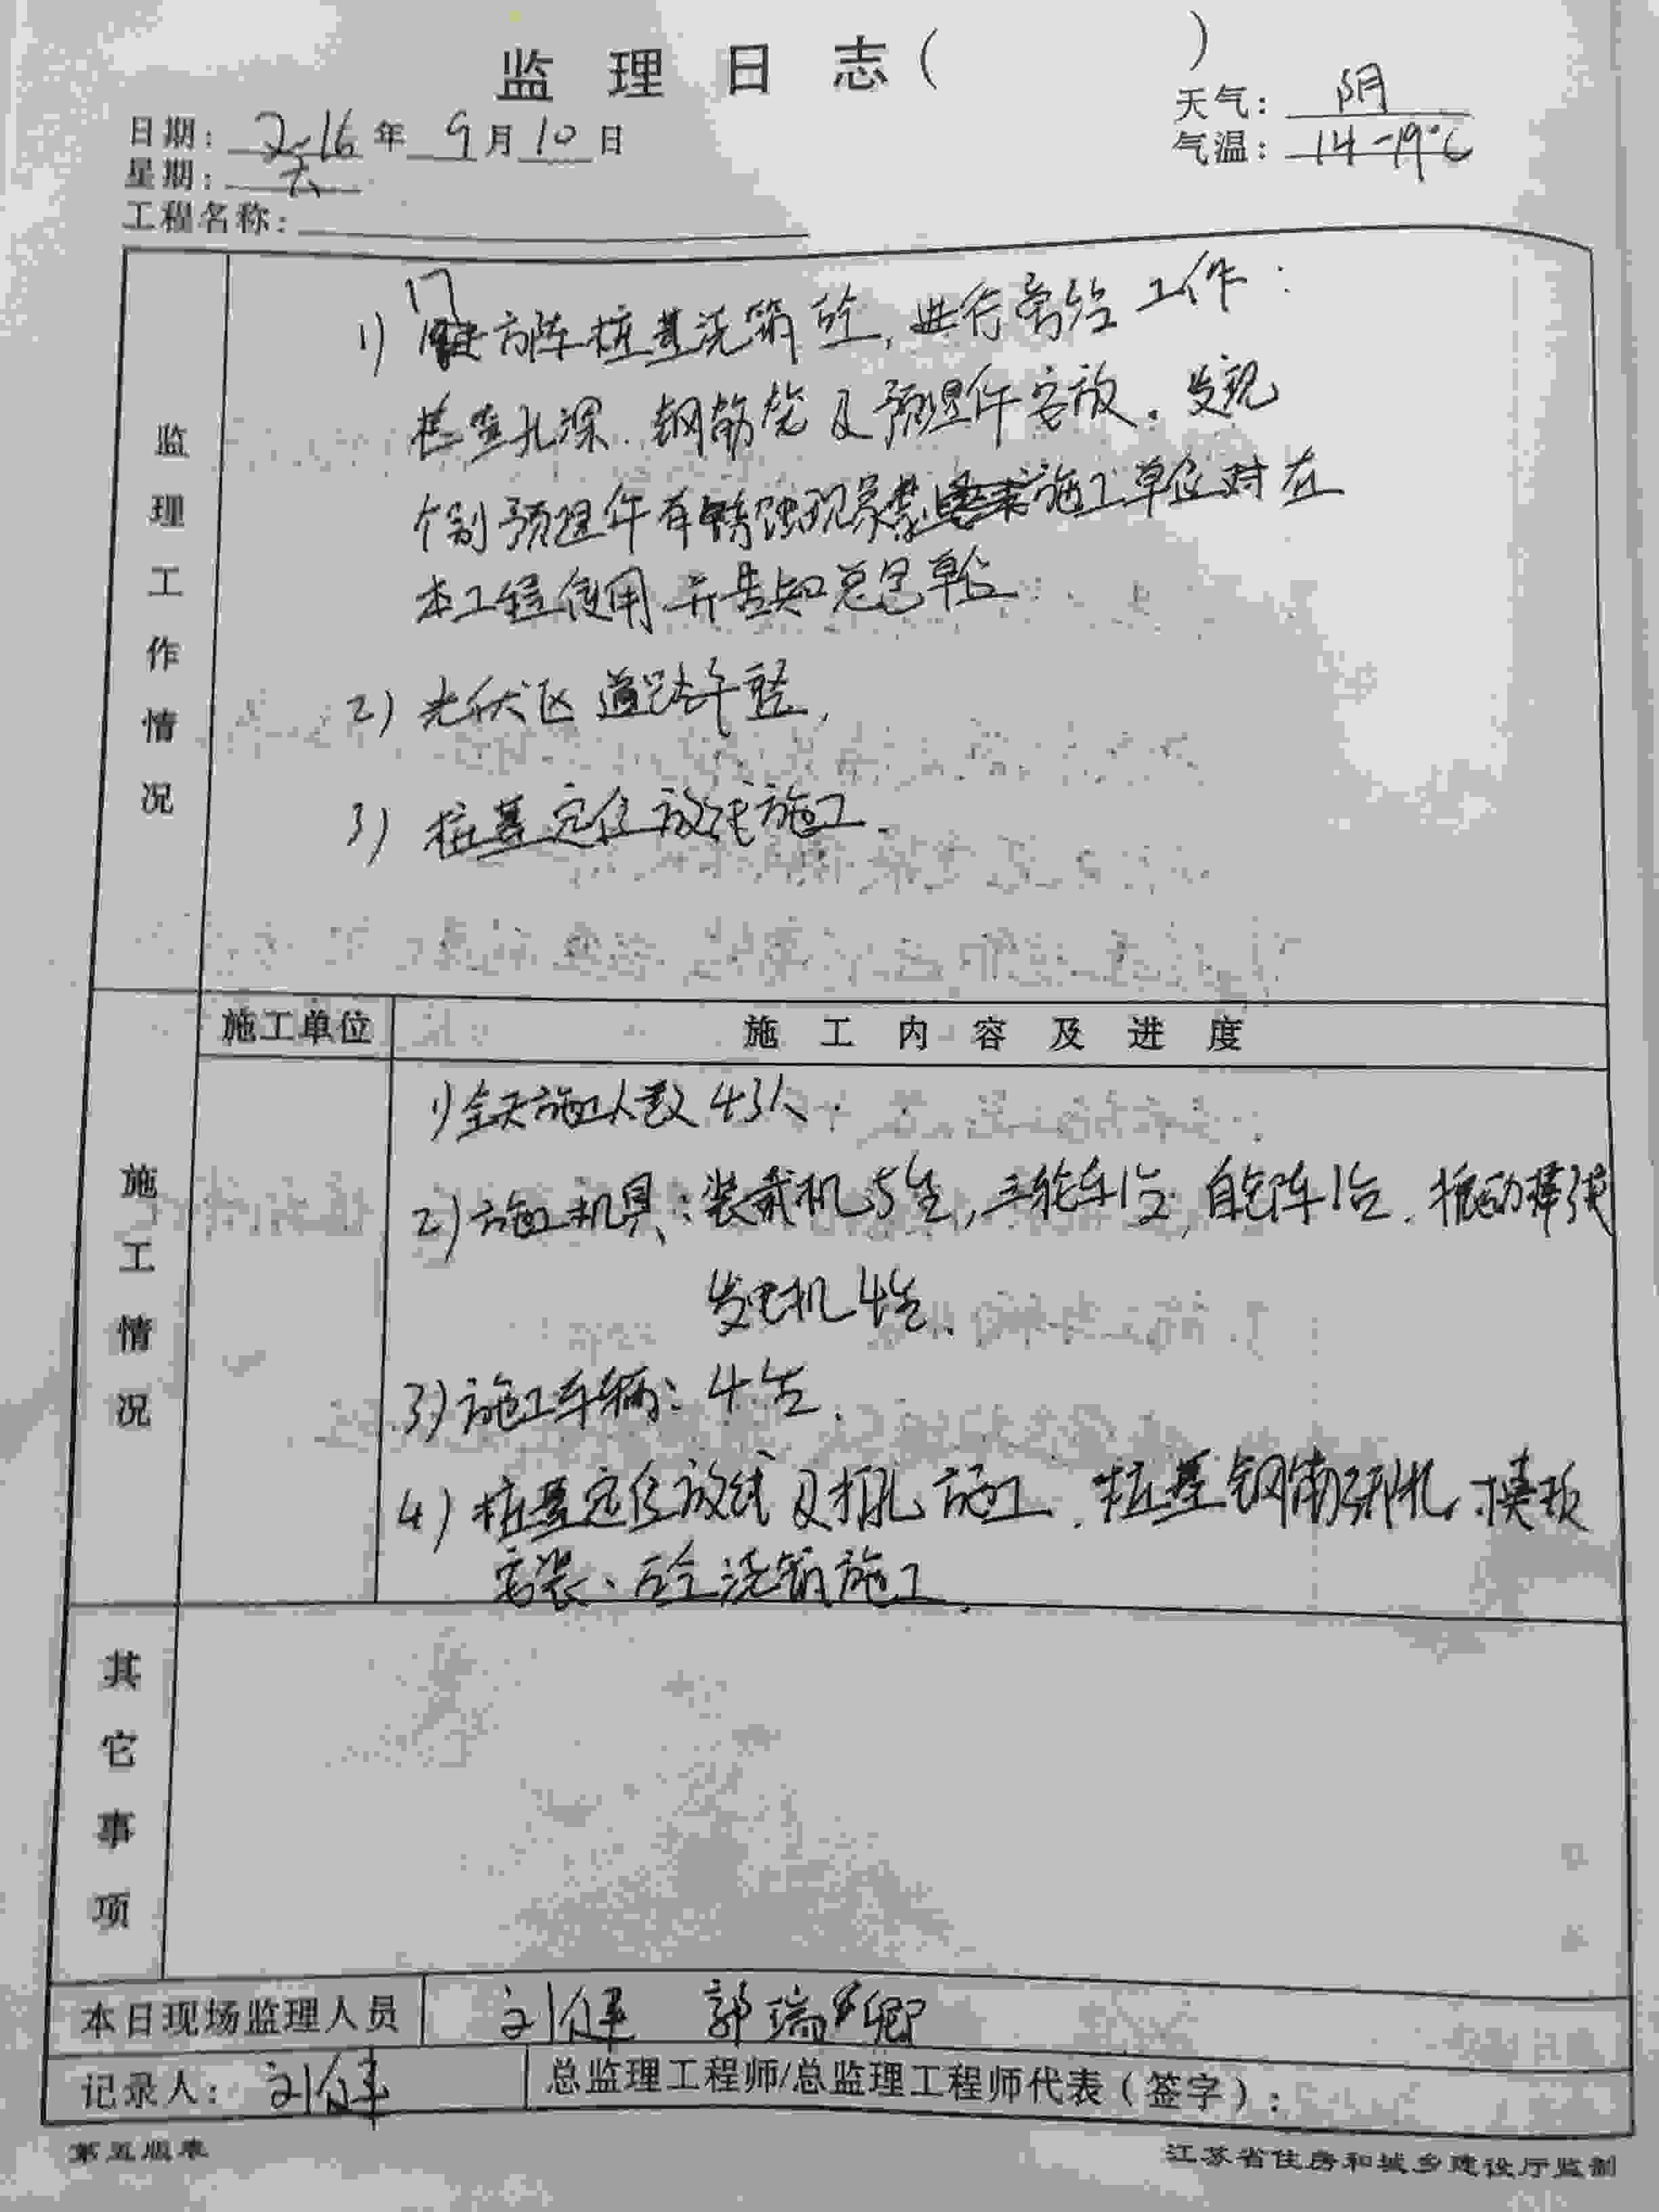 监理日志( )
日期: 2016年 9月10日
天气: 阴
星期: 六
气温: 14-19℃
工程名称:
监理工作情况
1) 方阵桩基浇筑砼,进行旁站工作:
检查孔深.钢筋笼及预埋件安放.发现
个别预埋件有锈蚀现象 施工单位 在
本工程使用 并告知总包单位
2) 光伏区道路平整,
3) 桩基定位放线施工.
施工情况
施工单位 施工内容及进度
1)全天施工人数43人.
2)施工机具:装载机5台,三轮车1台,自卸车1台.振动棒3
发电机4台.
3)施工车辆:4台.
4)桩基定位放线及打孔施工.桩基钢筋绑扎、模板
安装、砼浇筑施工.
其它事项
本日现场监理人员 刘健 郭瑞卿
记录人: 刘健 总监理工程师/总监理工程师代表(签字):
第五版表 江苏省住房和城乡建设厅监制